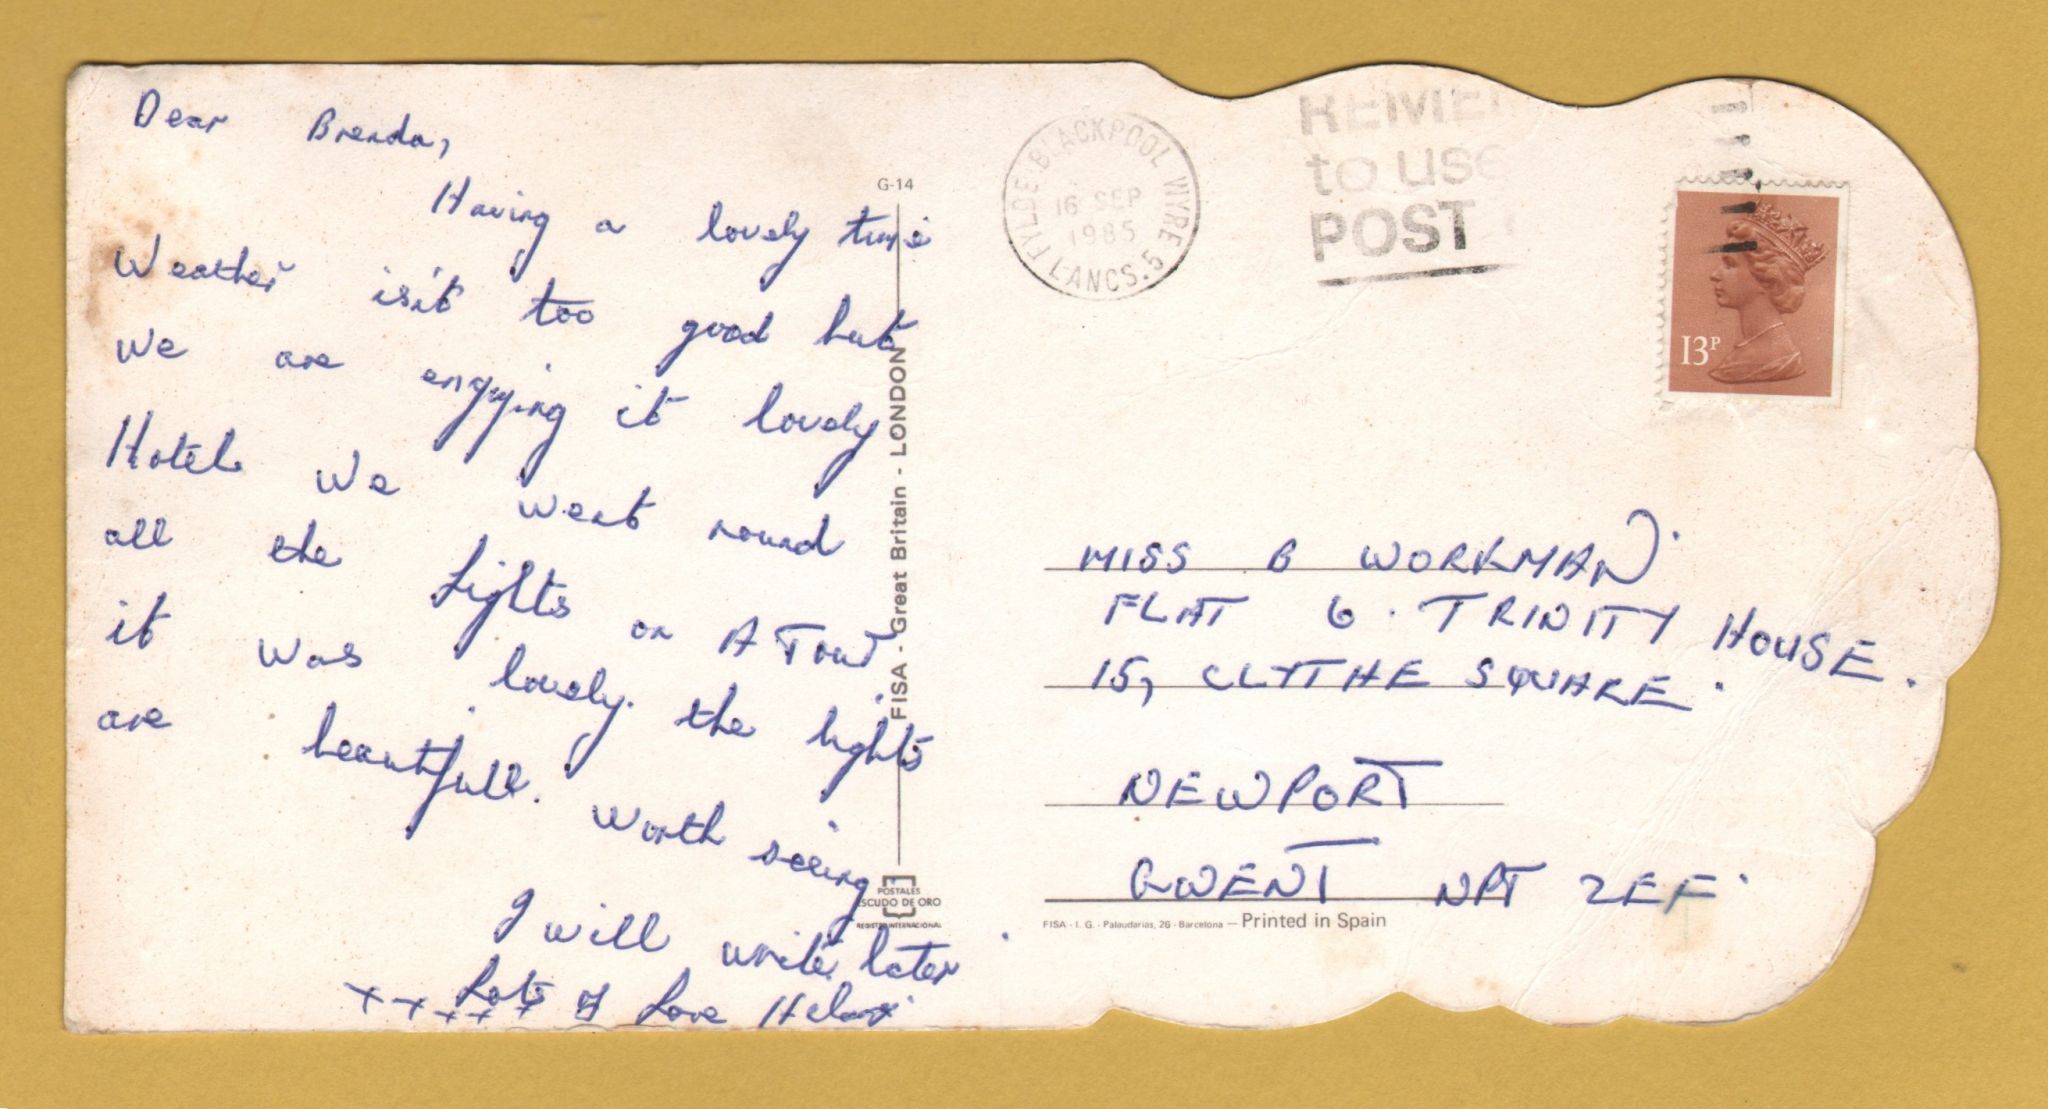 Dear Brenda,
Having a lovely time
Weather isn't too good but
We are enjoying it lovely
Hotel We went round
all the Lights on A Tour
it was lovely. the lights
are beautifull. worth seeing
I will write later
Lots of Love
xxxxxx
G-14
FISA - Great Britain - LONDON
POSTALES
ESCUDO DE ORO
REGISTRO INTERNACIONAL
FYLDE BLACKPOOL WYRE
16 SEP
1985
LANCS. 5
REMEM
to use
POST
13P
MISS B WORKMAN
FLAT 6. TRINITY HOUSE.
15, CLYTHE SQUARE.
NEWPORT
GWENT NPT 2EF.
FISA - I. G. - Palaudarias, 26 - Barcelona — Printed in Spain